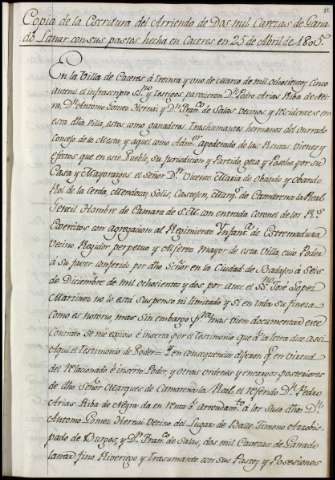 Copia de la Escritura del Arriendo de Dos mil Cavezas de Gana
do Lanar con sus pastos hecha en Caceres en 25 de Abril de 1803.
En la Villa de Caceres á treinta y uno de marzo de mil ochocientos y cinco
ante mi el infrascripto SSno y testigos parecieron Dn Pedro Arias Riba de Ney
ra, Dn Antonio Gomez Hernai y Dn Franco de Salas Vecinos y residentes en
esta dha Villa, estos como ganaderos Trashumantes hermanos del Honrado
Concejo de la Mesta y aquel como Admr apoderado de las Rentas Vienes y
efectos que en este Pueblo, su jurisdiccion y Partido goza y Posehe por su
Casa y Mayorazgos el Señor Dn Vicente Maria de Obando y Obando
Rol de la Cerda, Mendoza, Solis, Castejon, Marqs de Camarena la Real
Gentil Hombre de Camara de S.M. con entrada Coronel de los Rs
Exercitos con agregacion al Regimiento Ynfanta de Extremadura
Vecino Regidor perpetuo y Alferez mayor de esta Villa, cuio Poder
á su favor conferido por dho Señor en la Ciudad de Badajoz á Seis
de Diciembre de mil ochocientos y dos por ante el SSno Jose Lopez
Martinez no le esta Suspenso ni limitado y si en toda su fuerza
como es notorio, mas Sin embargo pa mas bien documentar este
Contrato Se me exivio é inserta por el testimonio que á la letra dice asi
Aqui el Testimonio de Poder = en consequencia digeron que en virtud
del relacionado é inserto Poder, y otras ordenes y encargos posteriores
de dho Señor Marques de Camarena la Real el referido Dn Pedro
Arias Riba de Neyra da en renta y arrendamto á los dhos Dn
Antonio Gomez Hernai Vecino del Lugar de Arzobis
pado de Burgos, y Dn Franco de Salas, dos mil Cavezas de Ganado
lanar fino Riveriego y Trasumante con sus Pastos y Posesiones